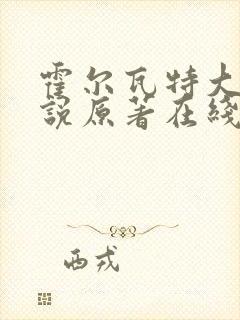 霍尔瓦特大
说原著在线
西戎